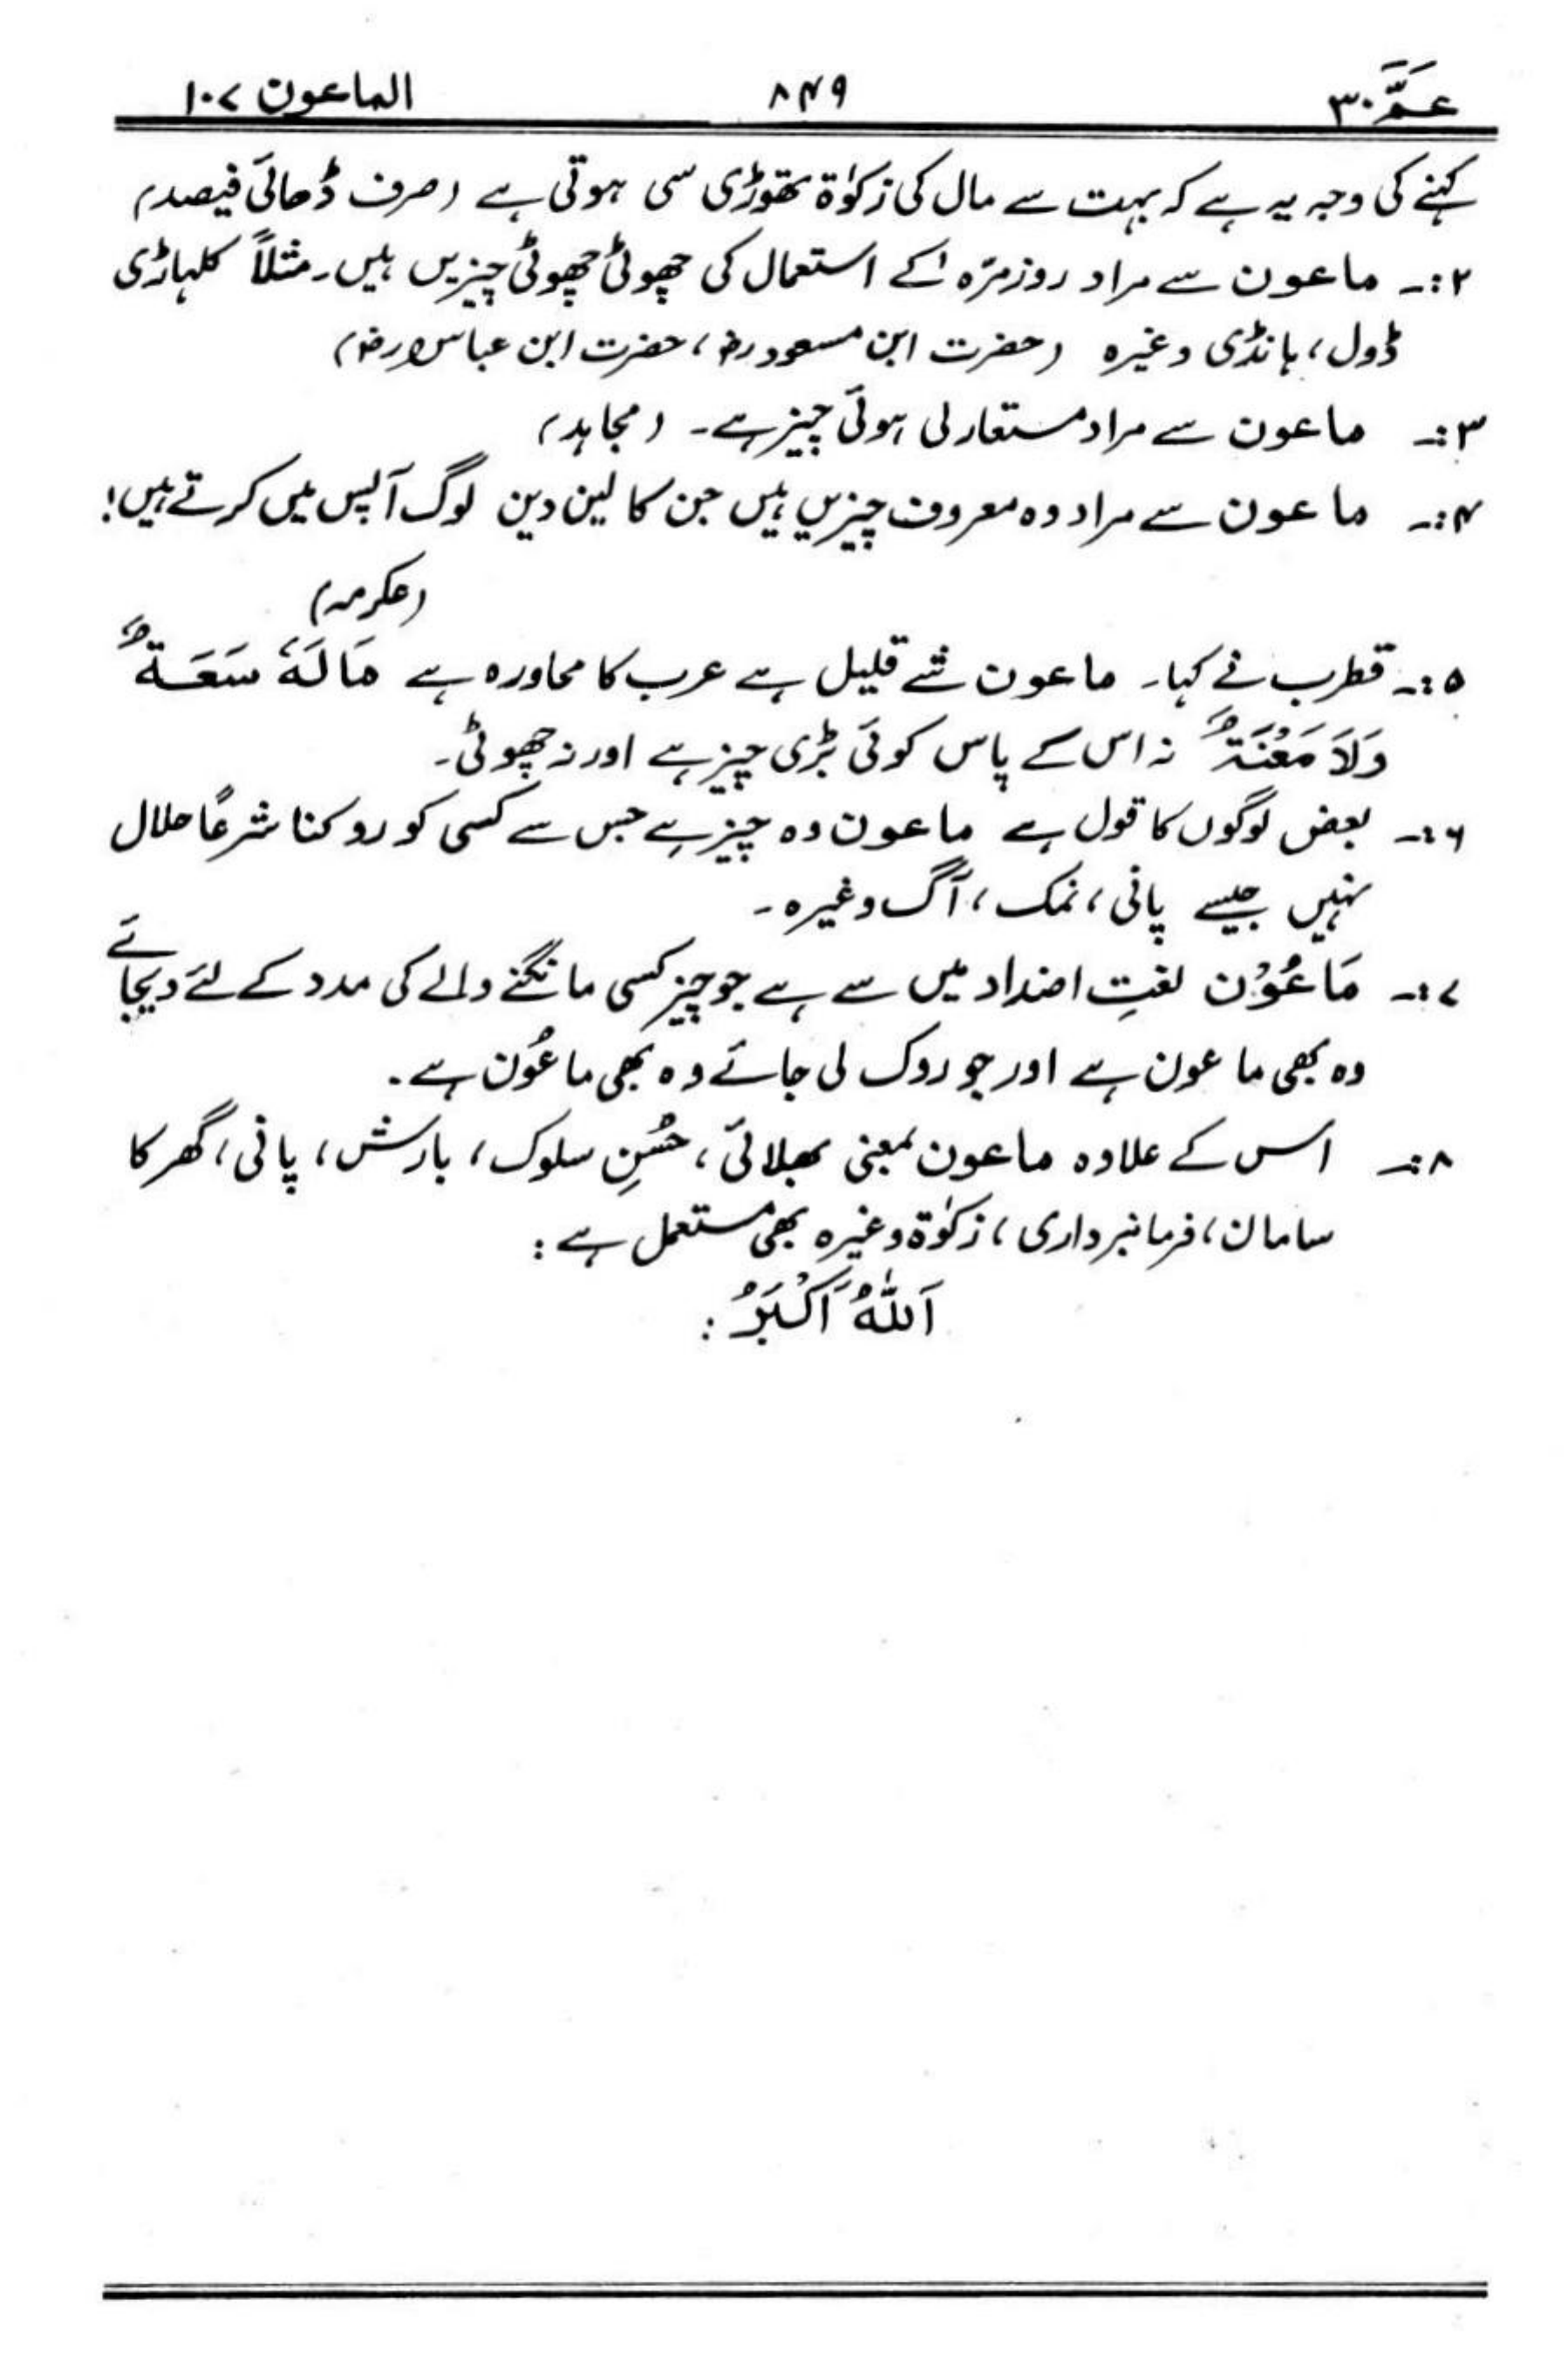 عَمَّ ۳۰ ۸۴۹ الماعون ۱۰۷
کہنے کی وجہ یہ ہے کہ بہت سے مال کی زکوٰۃ تھوڑی سی ہوتی ہے (صرف ڈھائی فیصد)
۲:۔ ماعون سے مراد روزمرّہ کے استعمال کی چھوٹی چھوٹی چیزیں ہیں۔ مثلاً کلہاڑی
ڈول، ہانڈی وغیرہ (حضرت ابن مسعود رض، حضرت ابن عباس رض)
۳:۔ ماعون سے مراد مستعار لی ہوئی چیز ہے۔ (مجاہد)
۴:۔ ماعون سے مراد وہ معروف چیزیں ہیں جن کا لین دین لوگ آپس میں کرتے ہیں!
(عکرمہ)
۵:۔ قطرب نے کہا۔ ماعون شے قلیل ہے عرب کا محاورہ ہے مَالَهٗ سَعَةٌ
وَلَا مَعْنَةٌ نہ اس کے پاس کوئی بڑی چیز ہے اور نہ چھوٹی۔
۶:۔ بعض لوگوں کا قول ہے ماعون وہ چیز ہے جس سے کسی کو روکنا شرعًا حلال
نہیں جیسے پانی، نمک، آگ وغیرہ۔
۷:۔ مَاعُوْن لغتِ اضداد میں سے ہے جو چیز کسی مانگنے والے کی مدد کے لئے دیجائے
وہ بھی ماعون ہے اور جو روک لی جائے وہ بھی ماعُون ہے۔
۸:۔ اس کے علاوہ ماعون بمعنی بھلائی، حُسنِ سلوک، بارش، پانی، گھر کا
سامان، فرمانبرداری، زکوٰۃ وغیرہ بھی مستعمل ہے:
اَللّٰهُ اَكْبَرُ: